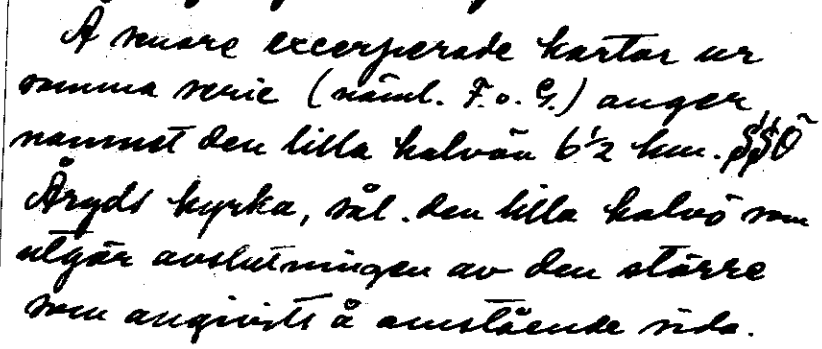 Å senare excerperade kartor ur
samma serie (näml. F. o. G.) anger
namnet den lilla halvön 6 1/2 km. SSO
Åryds kyrka, sål. den lilla halvö som
utgör avslutningen av den större
som angivits å omstående sida.